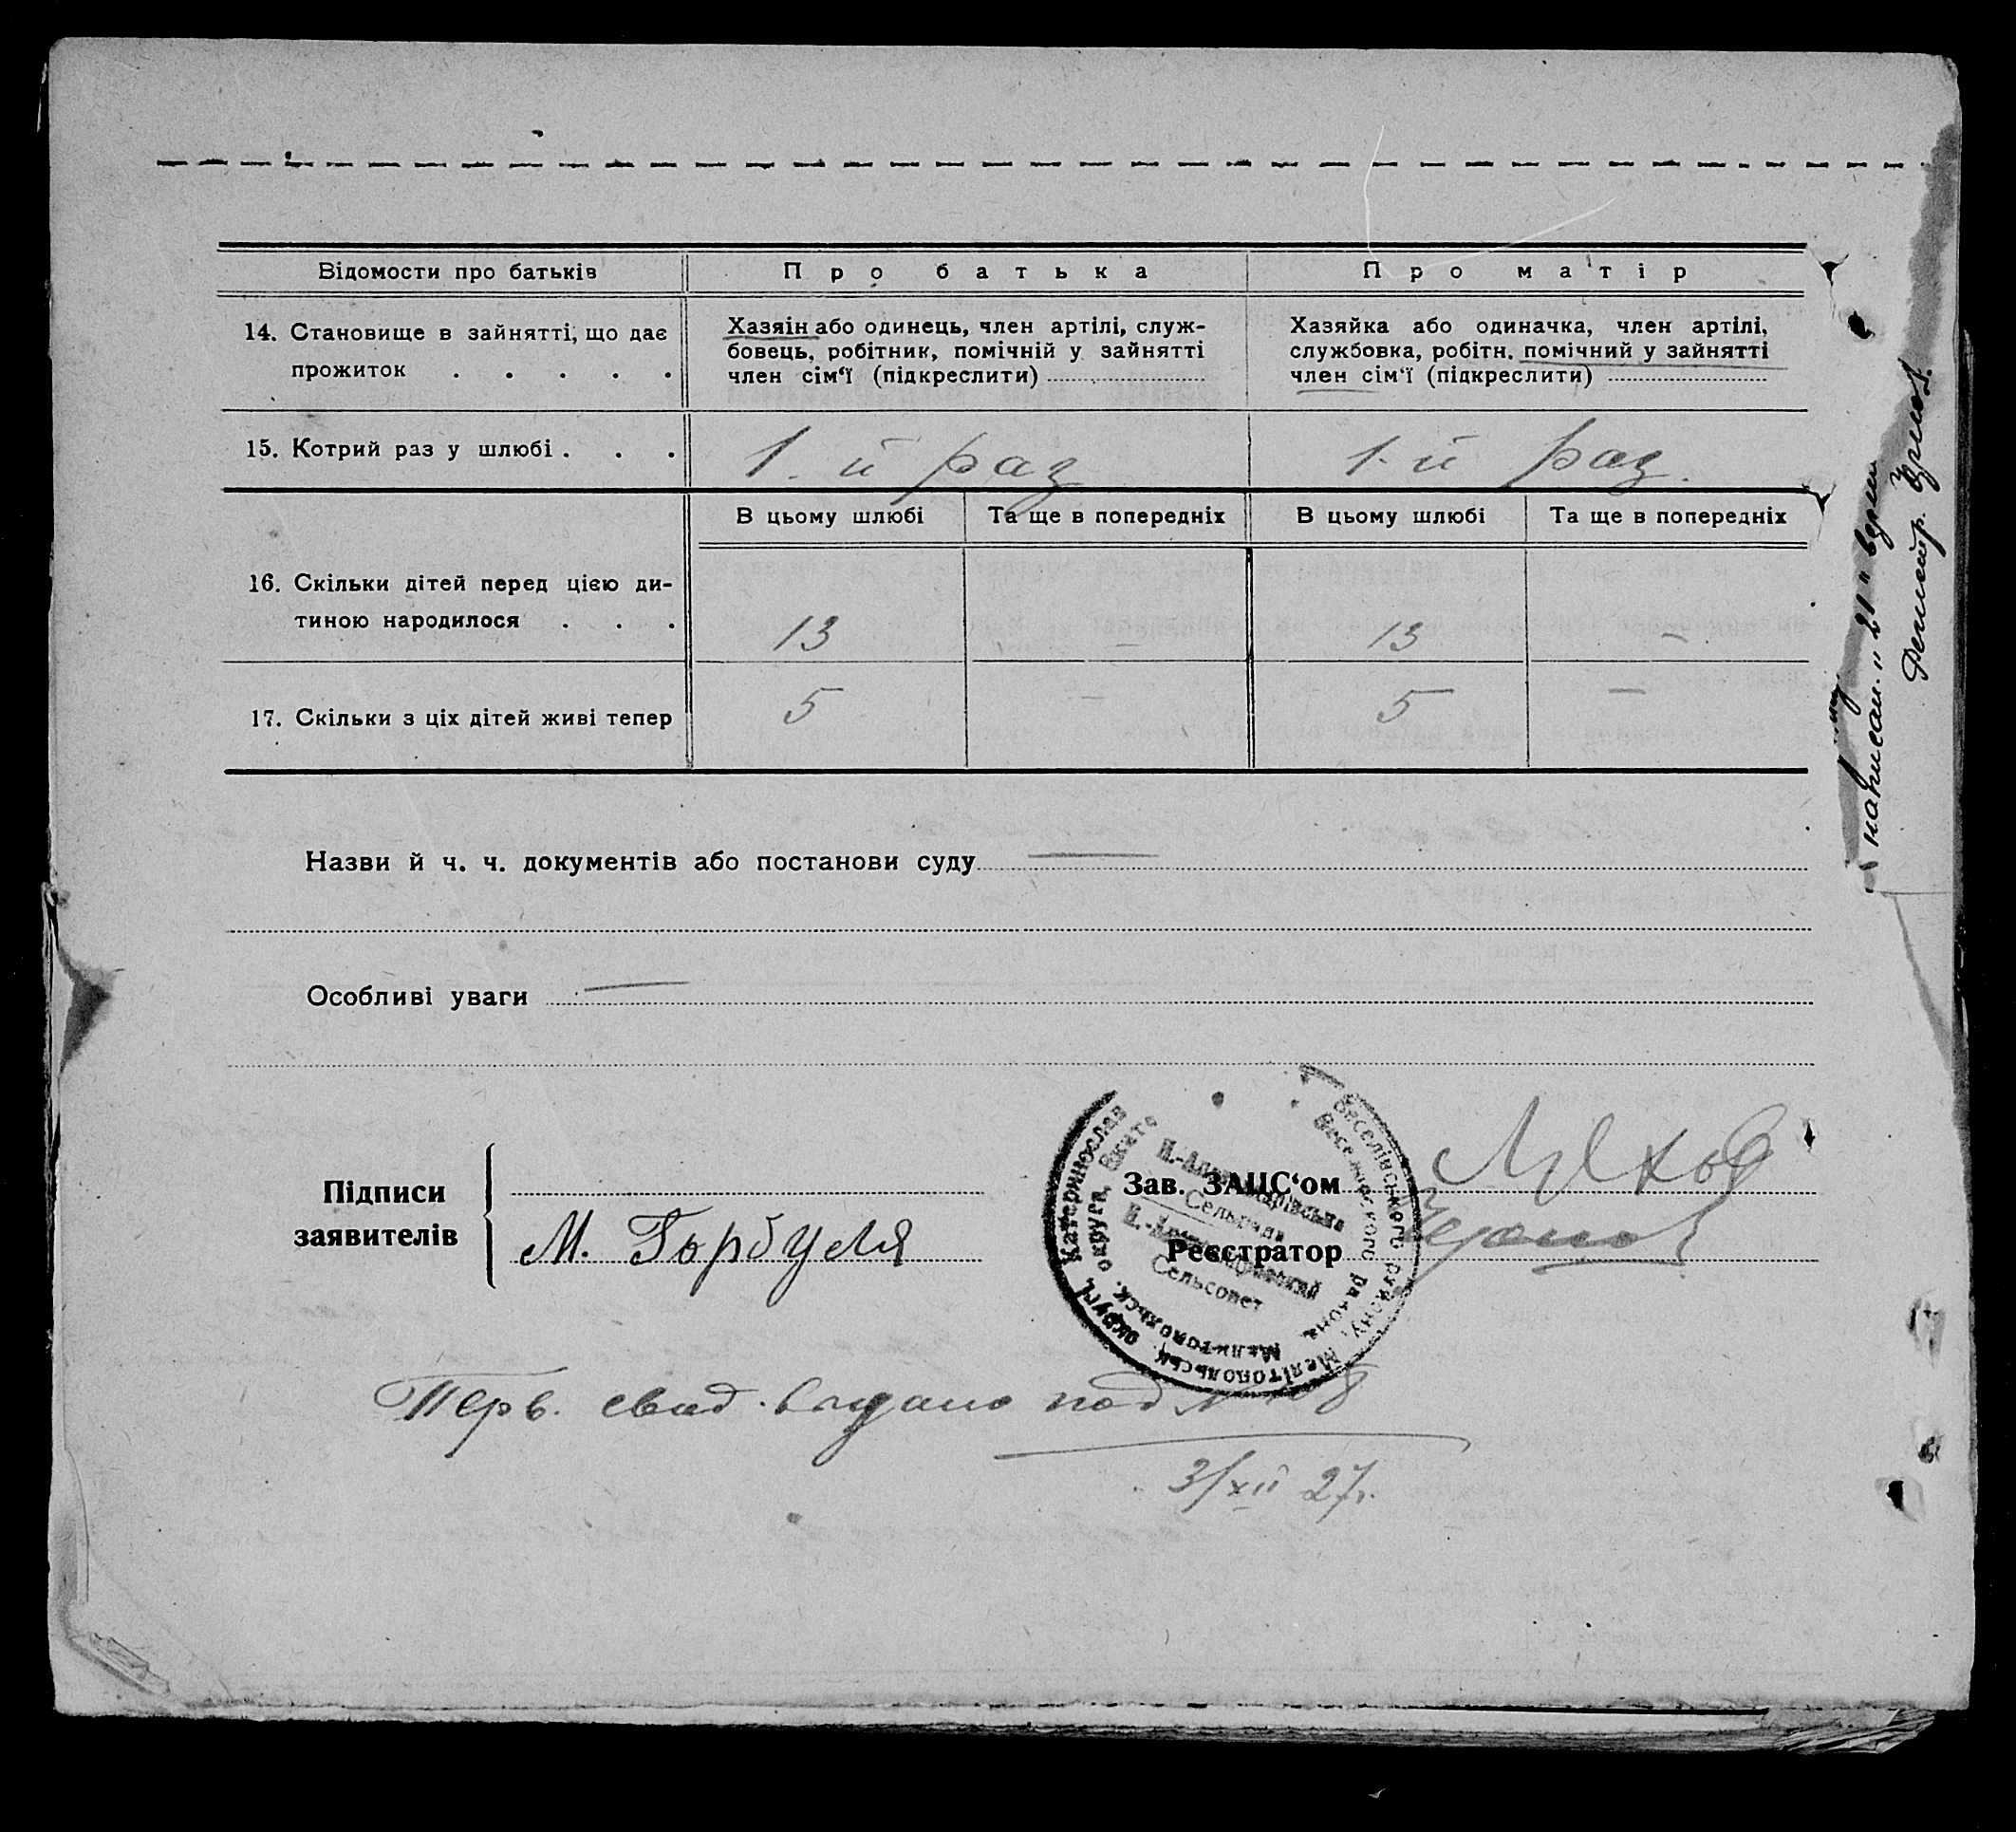 Відомости про батьків
Про батька
Про матір
14. Становище в зайнятті, що дає
прожиток . . . . .
Хазяін або одинець, член артілі, служ-
бовець, робітник, помічній у зайнятті
член сім‘ї (підкреслити)
Хазяйка або одиначка, член артілі,
службовка, робітн. помічний у зайнятті
член сім‘ї (підкреслити)
15. Котрий раз у шлюбі . . .
1-й раз
1-й раз.
В цьому шлюбі
Та ще в попередніх
В цьому шлюбі
Та ще в попередніх
16. Скільки дітей перед цією ди-
тиною народилося . . .
13
—
13
—
17. Скільки з ціх дітей живі тепер
5
—
5
—
Назви й ч. ч. документів або постанови суду —
Особливі уваги —
Підписи
заявителів
М. Горбуля
Зав. ЗАЦС‘ом
Реєстратор
Веселінського району, Мелітопольськ. округі, Катеринослав
Веселовского района, Мелитопольск. округа,
Сельрада
Сельсовет
Перв. свид. выдано под №
3/XII 27г.
написан. "21" верш
Регистр.